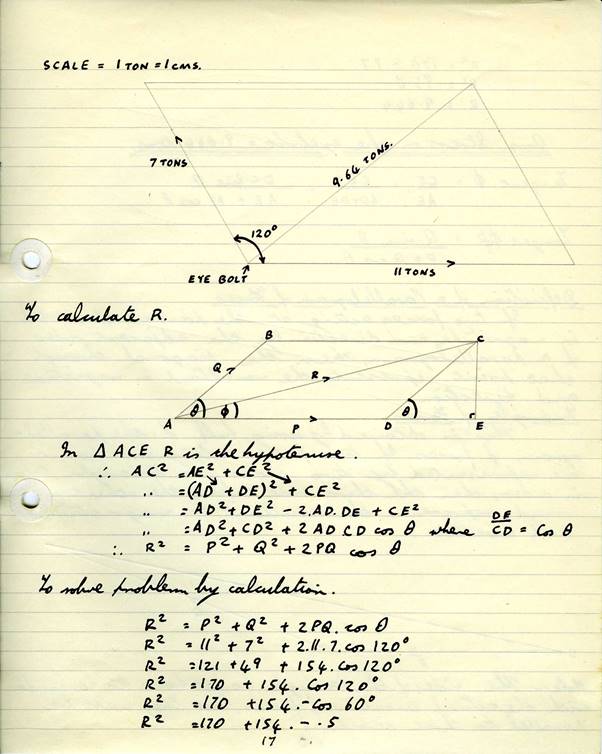 SCALE = 1 TON = 1 CMS.
7 TONS
9.64 TONS.
120°
EYE BOLT
11 TONS
To calculate R.
B
C
Q
R
θ
φ
θ
A
P
D
E
In Δ ACE R is the hypotenuse.
∴ AC² = AE² + CE²
" = (AD + DE)² + CE²
" = AD² + DE² - 2.AD.DE + CE²
" = AD² + CD² + 2AD.CD cos θ where DE/CD = Cos θ
∴ R² = P² + Q² + 2PQ cos θ
To solve problem by calculation.
R² = P² + Q² + 2PQ. cos θ
R² = 11² + 7² + 2.11.7. cos 120°
R² = 121 + 49 + 154. cos 120°
R² = 170 + 154. Cos 120°
R² = 170 + 154. - cos 60°
R² = 170 + 154. - .5
17